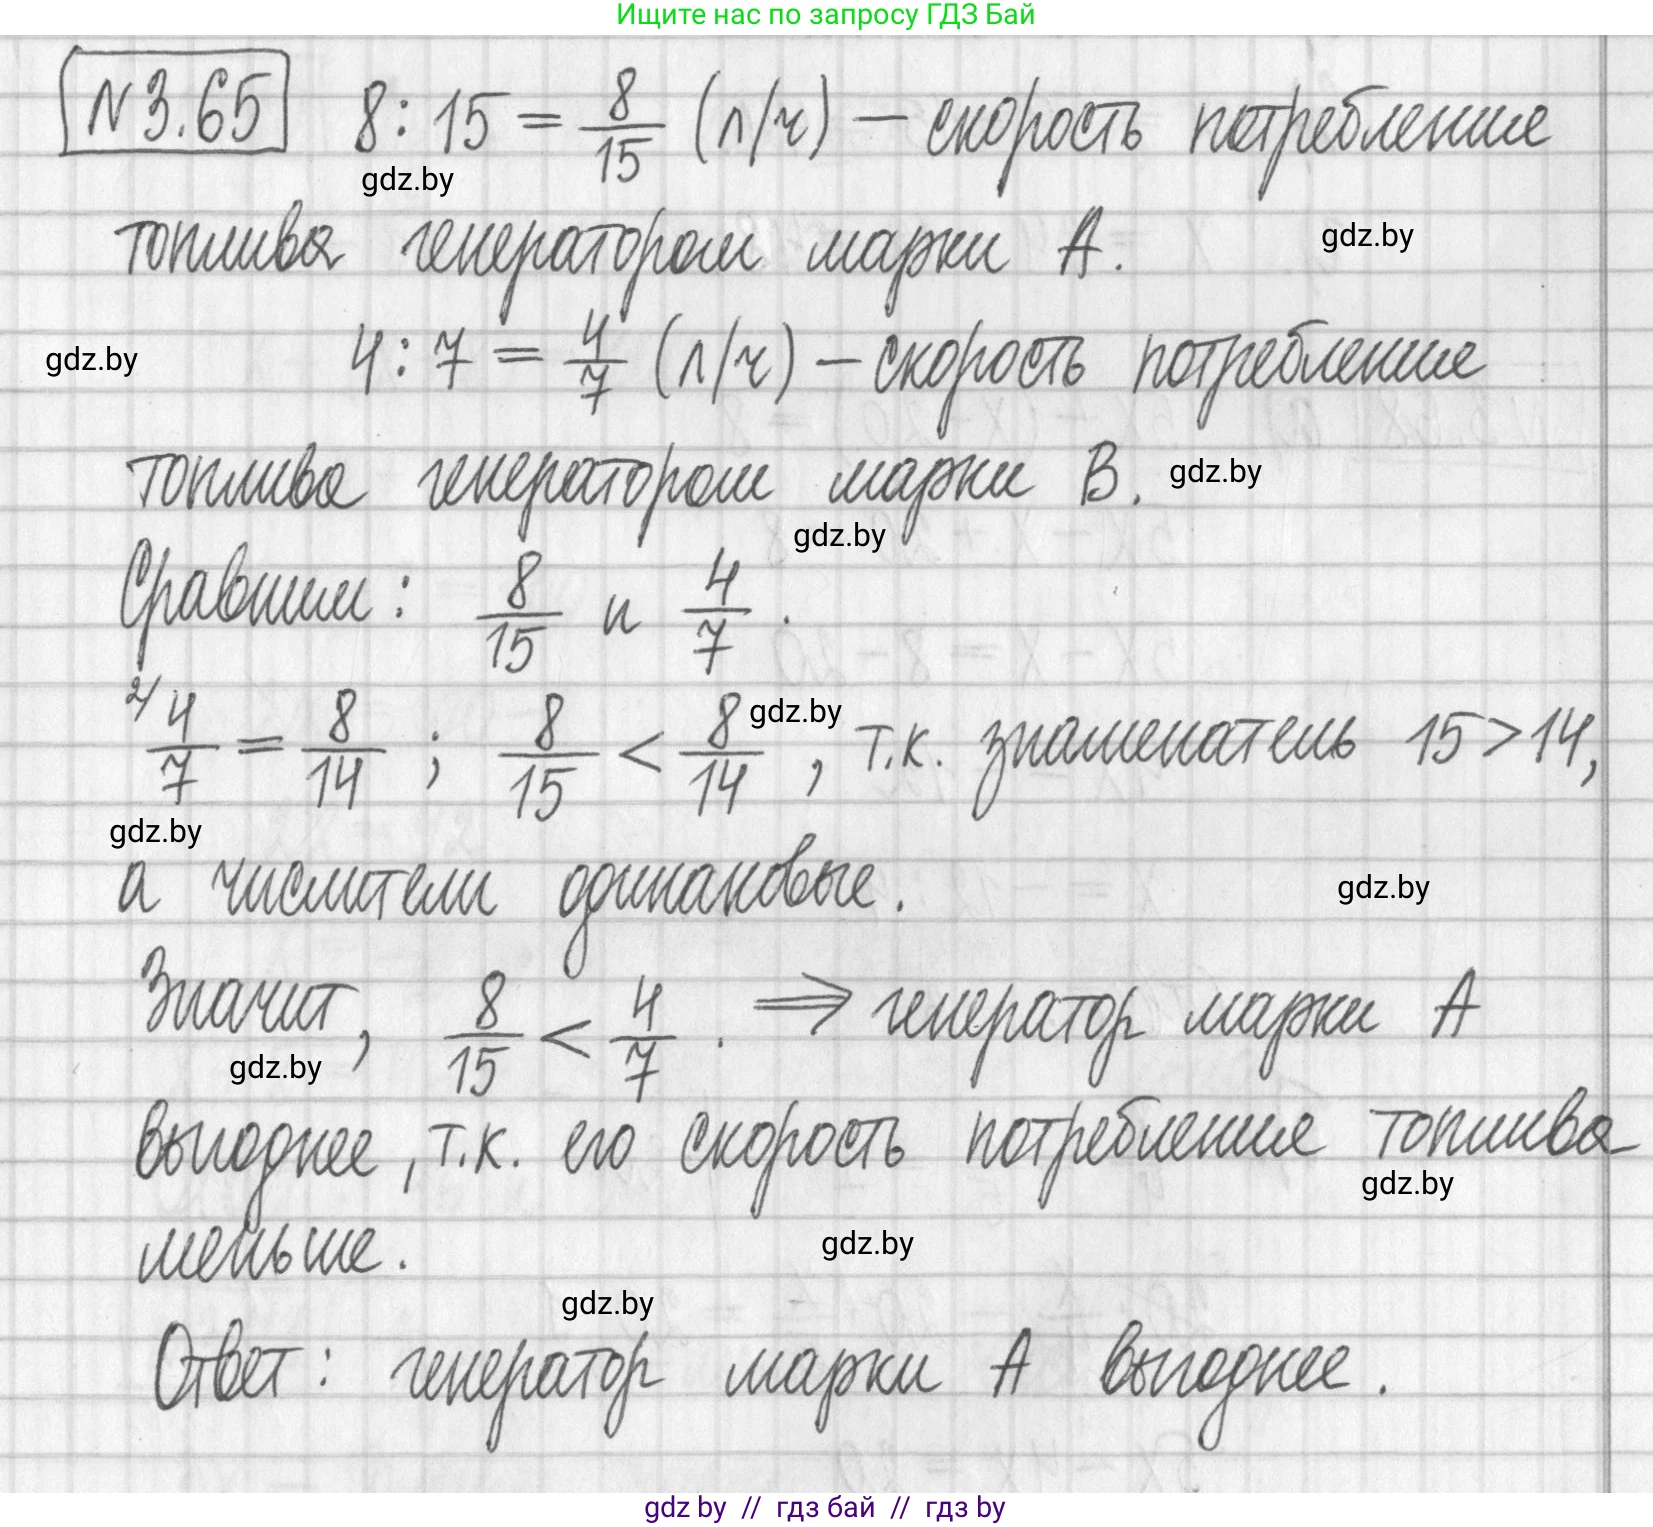 Ищите нас по запросу ГДЗ Бай
N3.65 8 : 15 = 8/15 (л/ч) – скорость потребление
gdz.by
топлива генератором марки А. gdz.by
gdz.by 4 : 7 = 4/7 (л/ч) – скорость потребление
топлива генератором марки В. gdz.by
gdz.by
Сравним: 8/15 и 4/7.
2/ 4/7 = 8/14 ; 8/15 < 8/14 gdz.by , т.к. знаменатель 15>14,
gdz.by
а числители одинаковые. gdz.by
Значит, 8/15 < 4/7. ⇒ генератор марки А
gdz.by
выгоднее, т.к. его скорость потребления топлива
gdz.by
меньше. gdz.by
gdz.by
Ответ: генератор марки А выгоднее.
gdz by // гдз бай // гдз by